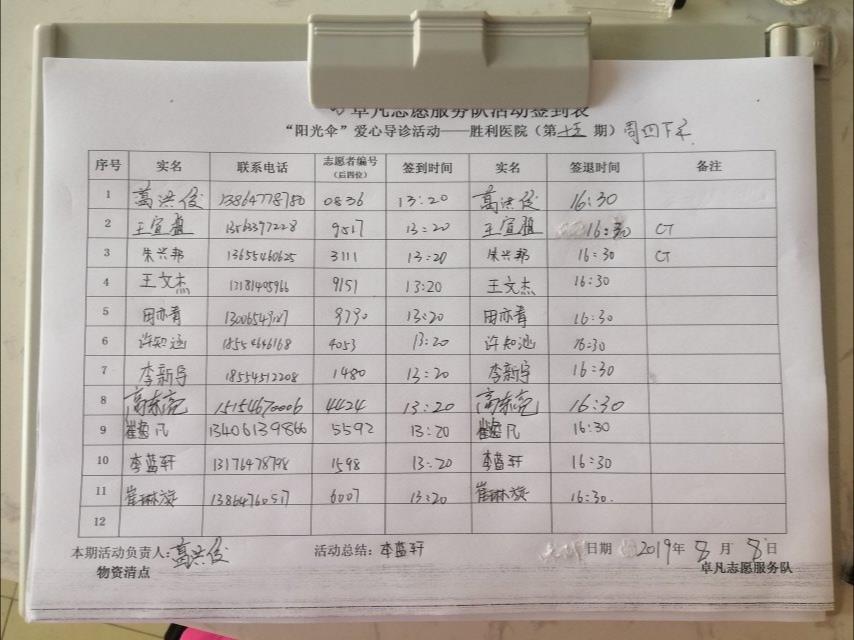 卓凡志愿服务队活动签到表
“阳光伞”爱心导诊活动——胜利医院（第十五期）周四下午
序号 实名 联系电话 志愿者编号（后四位） 签到时间 实名 签退时间 备注
1 葛洪俊 13864778780 0836 13:20 葛洪俊 16:30
2 王宣雅 13563397228 9517 13:20 王宣雅 16:30 CT
3 朱兴邦 13655460625 3111 13:20 朱兴邦 16:30 CT
4 王文杰 9151 13:20 王文杰 16:30
5 田亦青 9790 13:20 田亦青 16:30
6 许知涵 18554646168 4053 13:20 许知涵 16:30
7 李新宇 18554512208 1480 13:20 李新宇 16:30
8 15154670006 4424 13:20 16:30
9 凡 13406139866 5592 13:20 凡 16:30
10 李蓝轩 13176478798 1598 13:20 李蓝轩 16:30
11 崔琳旋 13864760517 6007 13:20 崔琳旋 16:30.
12
本期活动负责人：葛洪俊 活动总结：李蓝轩 日期 2019年8月8日
物资清点 卓凡志愿服务队